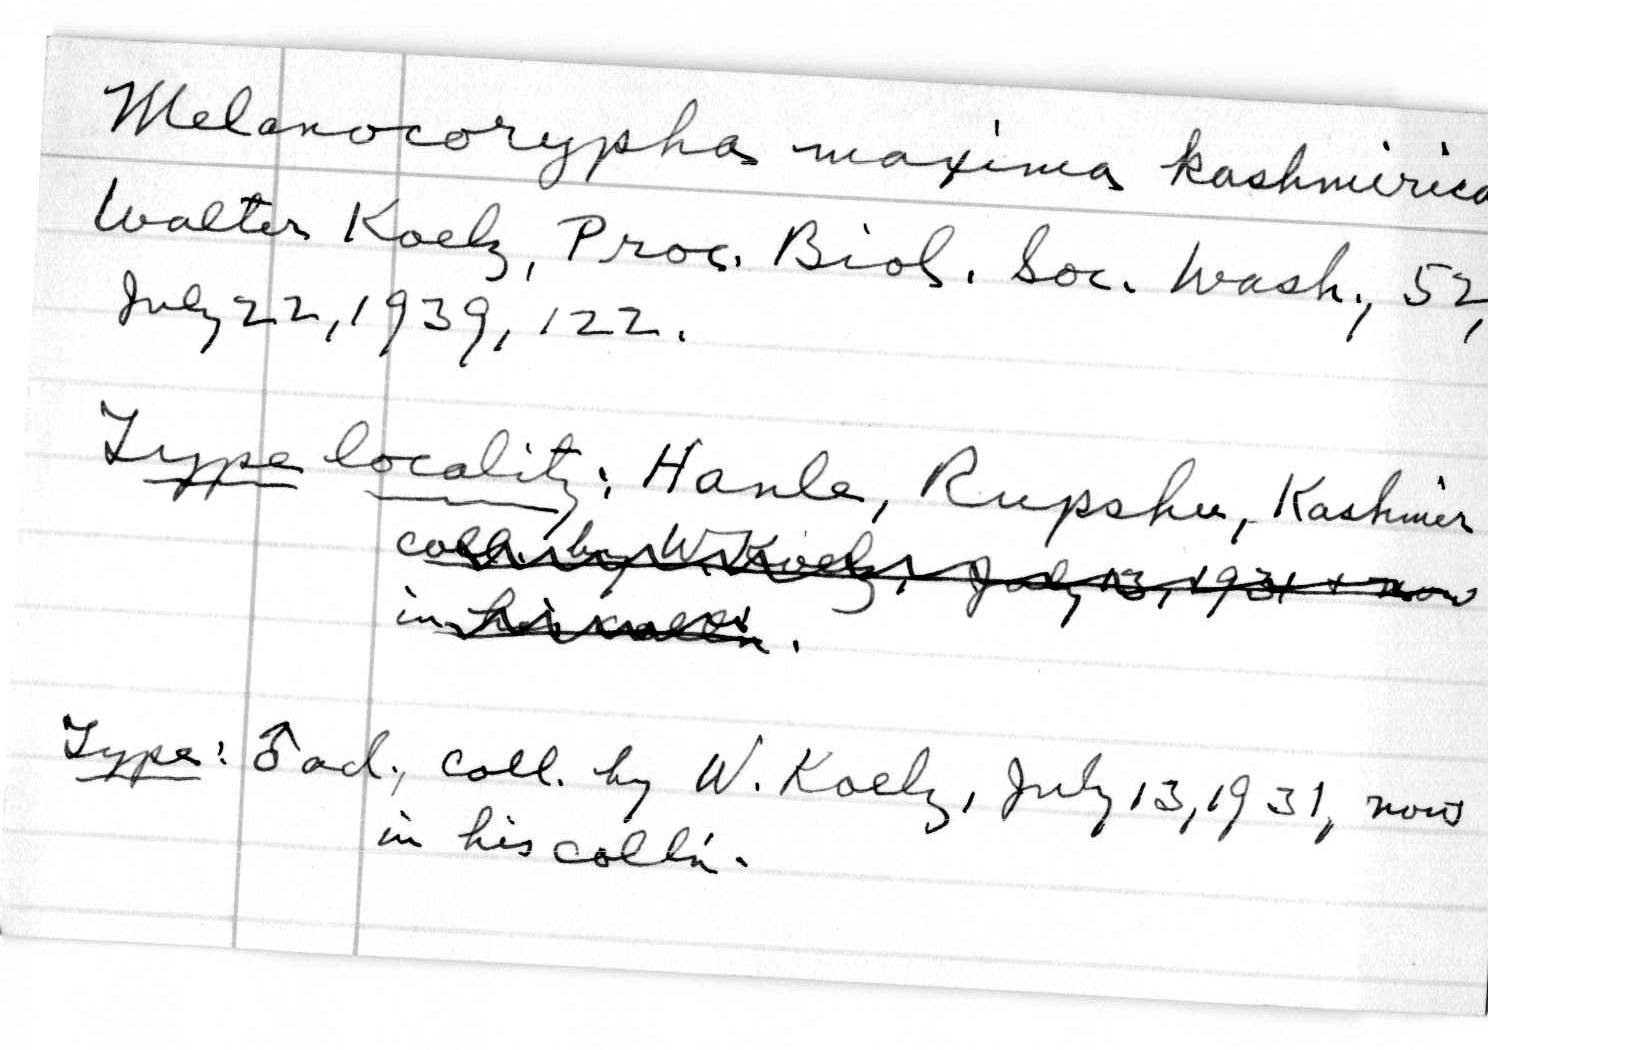 Melanocorypha maxima kashmirica
Walter Koelz, Proc. Biol. Soc. Wash., 52,
July 22, 1939, 122.
Type locality: Hanle, Rupshu, Kashmir
coll. by W. Koelz, July 13, 1931 + now
in his coll'n.
Type: ♂ ad., coll. by W. Koelz, July 13, 1931, now
in his coll'n.